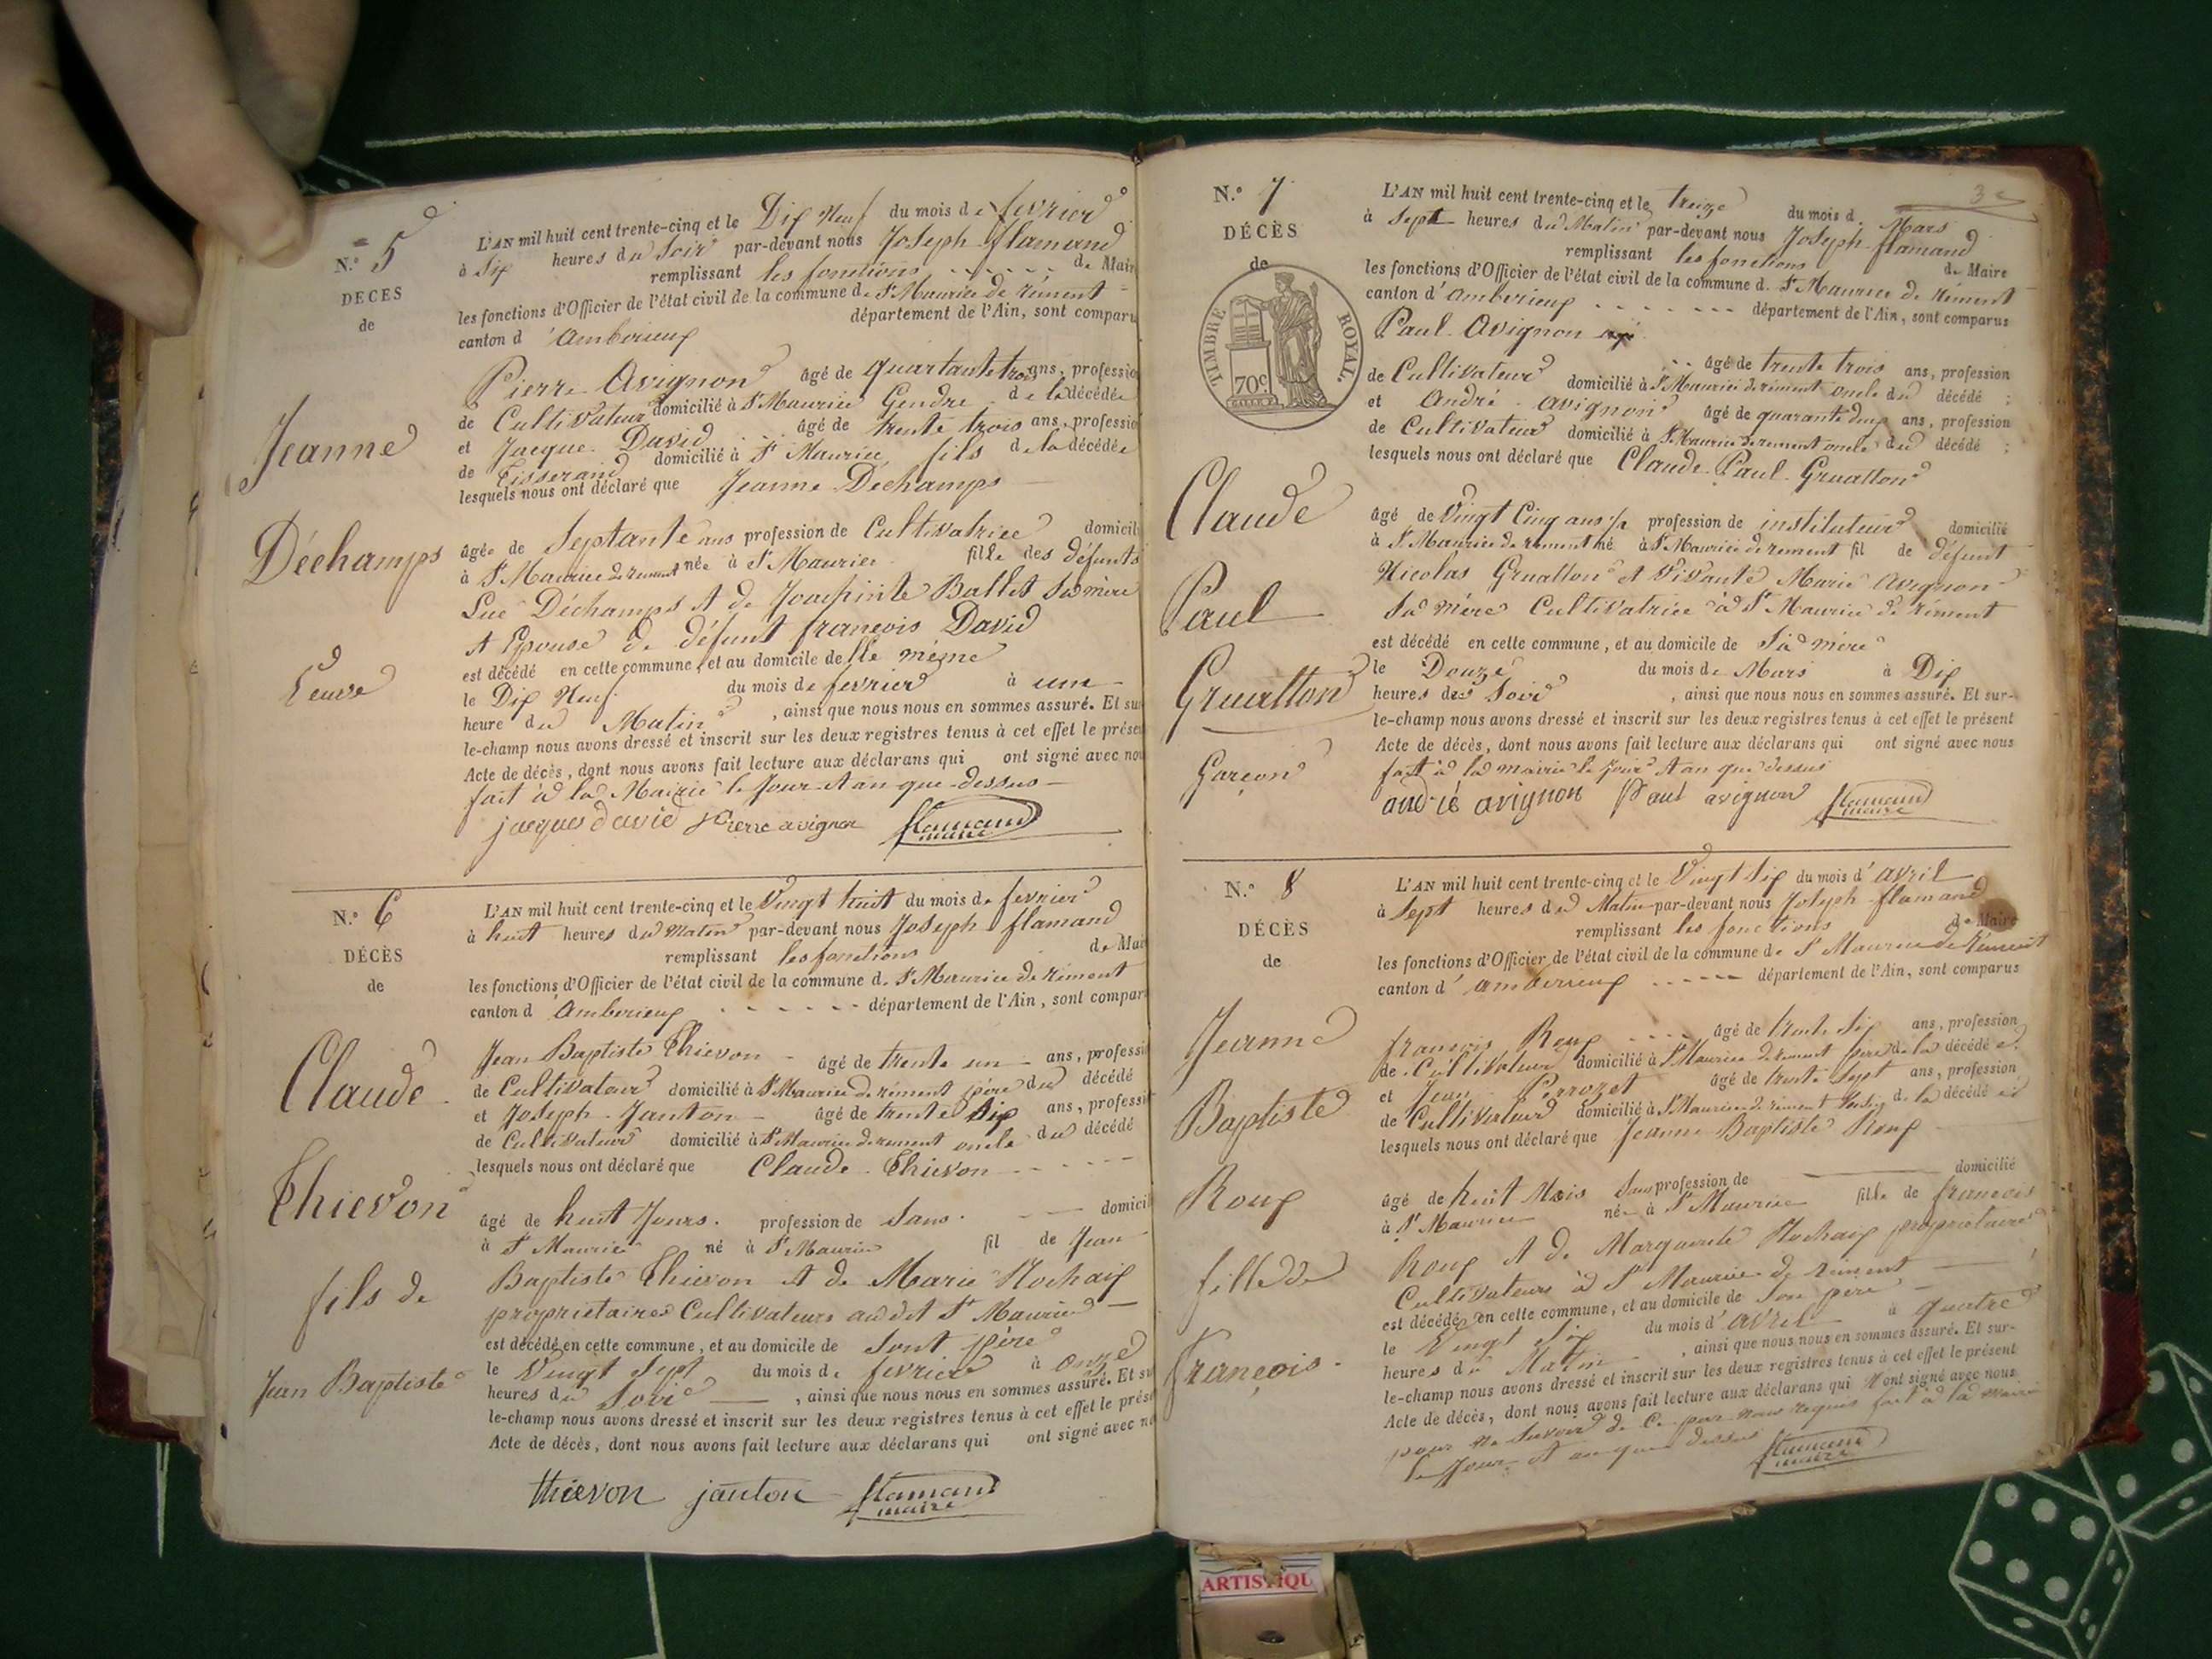 N.º 5
DÉCÈS
de
Jeanne
Déchamps
Veuve
L'AN mil huit cent trente-cinq et le Dix Neuf du mois de fevrier
à Six heures du Soir par-devant nous Joseph flamand
remplissant les fonctions de Mair
les fonctions d'Officier de l'état civil de la commune de St Maurice de rément
canton d'Amberieux département de l'Ain, sont comparu
Pierre Avignon âgé de quartante trois ans, professio
de Cultivateur domicilié à St Maurice Gendre de la décédée
et Jacque David âgé de trente trois ans, professio
de Tisserand domicilié à St Maurice fils de la décédée
lesquels nous ont déclaré que Jeanne Déchamps
âgée de Septante ans profession de Cultivatrice domicil
à St Maurice de rement née à St Maurice fille des défunts
Luc Déchamps et de Joachinte Ballet sa mère
et Epouse de défunt francois David
est décédé en cette commune, et au domicile de lle même
le Dix Neuf du mois de fevrier à une
heure du Matin, ainsi que nous nous en sommes assuré. Et sur
le-champ nous avons dressé et inscrit sur les deux registres tenus à cet effet le présen
Acte de décès, dont nous avons fait lecture aux déclarans qui ont signé avec nou
fait à la Mairie le Jour et an que dessus
jacques david pierre avignon flamand
maire
N.º 6
DÉCÈS
de
Claude
Thievon
fils de
Jean Baptiste
L'AN mil huit cent trente-cinq et le Vingt huit du mois de fevrier
à huit heures du Matin par-devant nous Joseph flamand
remplissant les fonctions de Mai
les fonctions d'Officier de l'état civil de la commune de St Maurice de rément
canton d'Amberieux département de l'Ain, sont compar
Jean Baptiste Thievon âgé de trente un ans, professi
de Cultivateur domicilié à St Maurice de rément père du décédé
et Joseph Janton âgé de trente Six ans, professi
de Cultivateur domicilié à St Maurice de rement oncle du décédé
lesquels nous ont déclaré que Claude Thievon
âgé de huit Jours. profession de Sans. domicil
à St Maurice né à St Maurice fil de Jean
Baptiste Thievon et de Marie Rochaix
proprietaires Cultivateurs au dit St Maurice
est décédé en cette commune, et au domicile de Sont père
le Vingt Sept du mois de fevrier à onze
heures du Soir, ainsi que nous nous en sommes assuré. Et su
le-champ nous avons dressé et inscrit sur les deux registres tenus à cet effet le prése
Acte de décès, dont nous avons fait lecture aux déclarans qui ont signé avec no
thievon janton flamand
maire
N.º 7
DÉCÈS
de
TIMBRE ROYAL.
70c
Claude
Paul
Gruatton
Garçon
L'AN mil huit cent trente-cinq et le treize du mois d. Mars
à Sept heures du Matin par-devant nous Joseph flamand
remplissant les fonctions de Maire
les fonctions d'Officier de l'état civil de la commune d. St Maurice de rément
canton d'amberieux département de l'Ain, sont comparus
Paul Avignon âgé de trente trois ans, profession
de Cultivateur domicilié à St Maurice de rément oncle du décédé ;
et André avignon âgé de quarante deux ans, profession
de Cultivateur domicilié à St Maurice de rement oncle du décédé ;
lesquels nous ont déclaré que Claude Paul Gruatton
âgé de Vingt Cinq ans profession de instituteur domicilié
à St Maurice de rement né à St Maurice de rement fil de défunt
Nicolas Gruatton et Vivante Marie Avignon
Sa mère Cultivatrice à St Maurice de rément
est décédé en cette commune, et au domicile de Sa mère
le Douze du mois de Mars à Dix
heures du Soir, ainsi que nous nous en sommes assuré. Et sur-
le-champ nous avons dressé et inscrit sur les deux registres tenus à cet effet le présent
Acte de décès, dont nous avons fait lecture aux déclarans qui ont signé avec nous
fait à la mairie le Jour et an que dessus
andré avignon Paul avignon flamand
maire
N.º 8
DÉCÈS
de
Jeanne
Baptiste
Roux
fille de
françois
L'AN mil huit cent trente-cinq et le Vingt Six du mois d'avril
à Sept heures du Matin par-devant nous Joseph flamand
remplissant les fonctions de Maire
les fonctions d'Officier de l'état civil de la commune de St Maurice de Rément
canton d'amberieux département de l'Ain, sont comparus
françois Roux âgé de trente Six ans, profession
de Cultivateur domicilié à St Maurice de rement père de la décédé e
et Jean Perrozet âgé de trente Sept ans, profession
de Cultivateur domicilié à St Maurice de rément Voisin de la décédé e
lesquels nous ont déclaré que Jeanne Baptiste Roux
âgé de huit Mois Sans profession de domicilié
à St Maurice née à St Maurice fille de francois
Roux et de Marguerite Rochaix proprietaires
Cultivateurs à St Maurice de rément
est décédé en cette commune, et au domicile de Son père
le Vingt Six du mois d'avril à quatre
heures du Matin, ainsi que nous nous en sommes assuré. Et sur-
le-champ nous avons dressé et inscrit sur les deux registres tenus à cet effet le présent
Acte de décès, dont nous avons fait lecture aux déclarans qui n'ont signé avec nous
pour ne Savoir de Ce par nous requis fait à la mairie
le Jour et an que dessus flamand
maire
ARTISTIQU